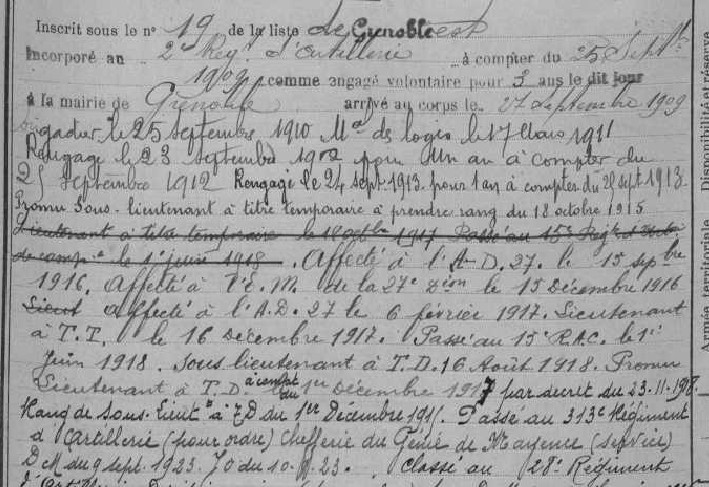 Inscrit sous le n° 19 de la liste de Grenoble est
Incorporé au 2e Regt d'Artillerie à compter du 25 Septbre
1909 comme engagé volontaire pour 3 ans le dit jour
à la mairie de Grenoble arrivé au corps le 27 Septembre 1909
Brigadier le 25 septembre 1910 Mal des logis le 17 Mars 1911
Rengagé le 23 septembre 1912 pour Un an à compter du
25 septembre 1912 Rengagé le 24 sept. 1913 pour 1 an à compter du 25 sept 1913
Promu Sous-lieutenant à titre temporaire à prendre rang du 18 octobre 1915
Lieutenant à titre temporaire le 18 octbre 1917 Passé au 15e Regt d'
de campne le 1er juin 1918. Affecté à l'A-D. 27. le 15 sepbre
1916. Affecté à l'E. M. de la 27e Dion le 15 Décembre 1916
Lieut affecté à l'A.D. 27 le 6 février 1917. Lieutenant
à T.T. le 16 Décembre 1917. Passé au 15e R.A.C. le 1er
Juin 1918. Sous lieutenant à T.D. 16 Août 1918. Promu
Lieutenant à T.D. à compt du 1er Décembre 1917 par décret du 23-11-198
Rang de Sous-Lieutt à TD du 1er Decembre 1915. Passé au 313e Régiment
d'Artillerie (pour ordre) Chefferie du Génie de (service)
D M du 9 sept. 1923. JO du 10.9.23. Classé au 28e Régiment